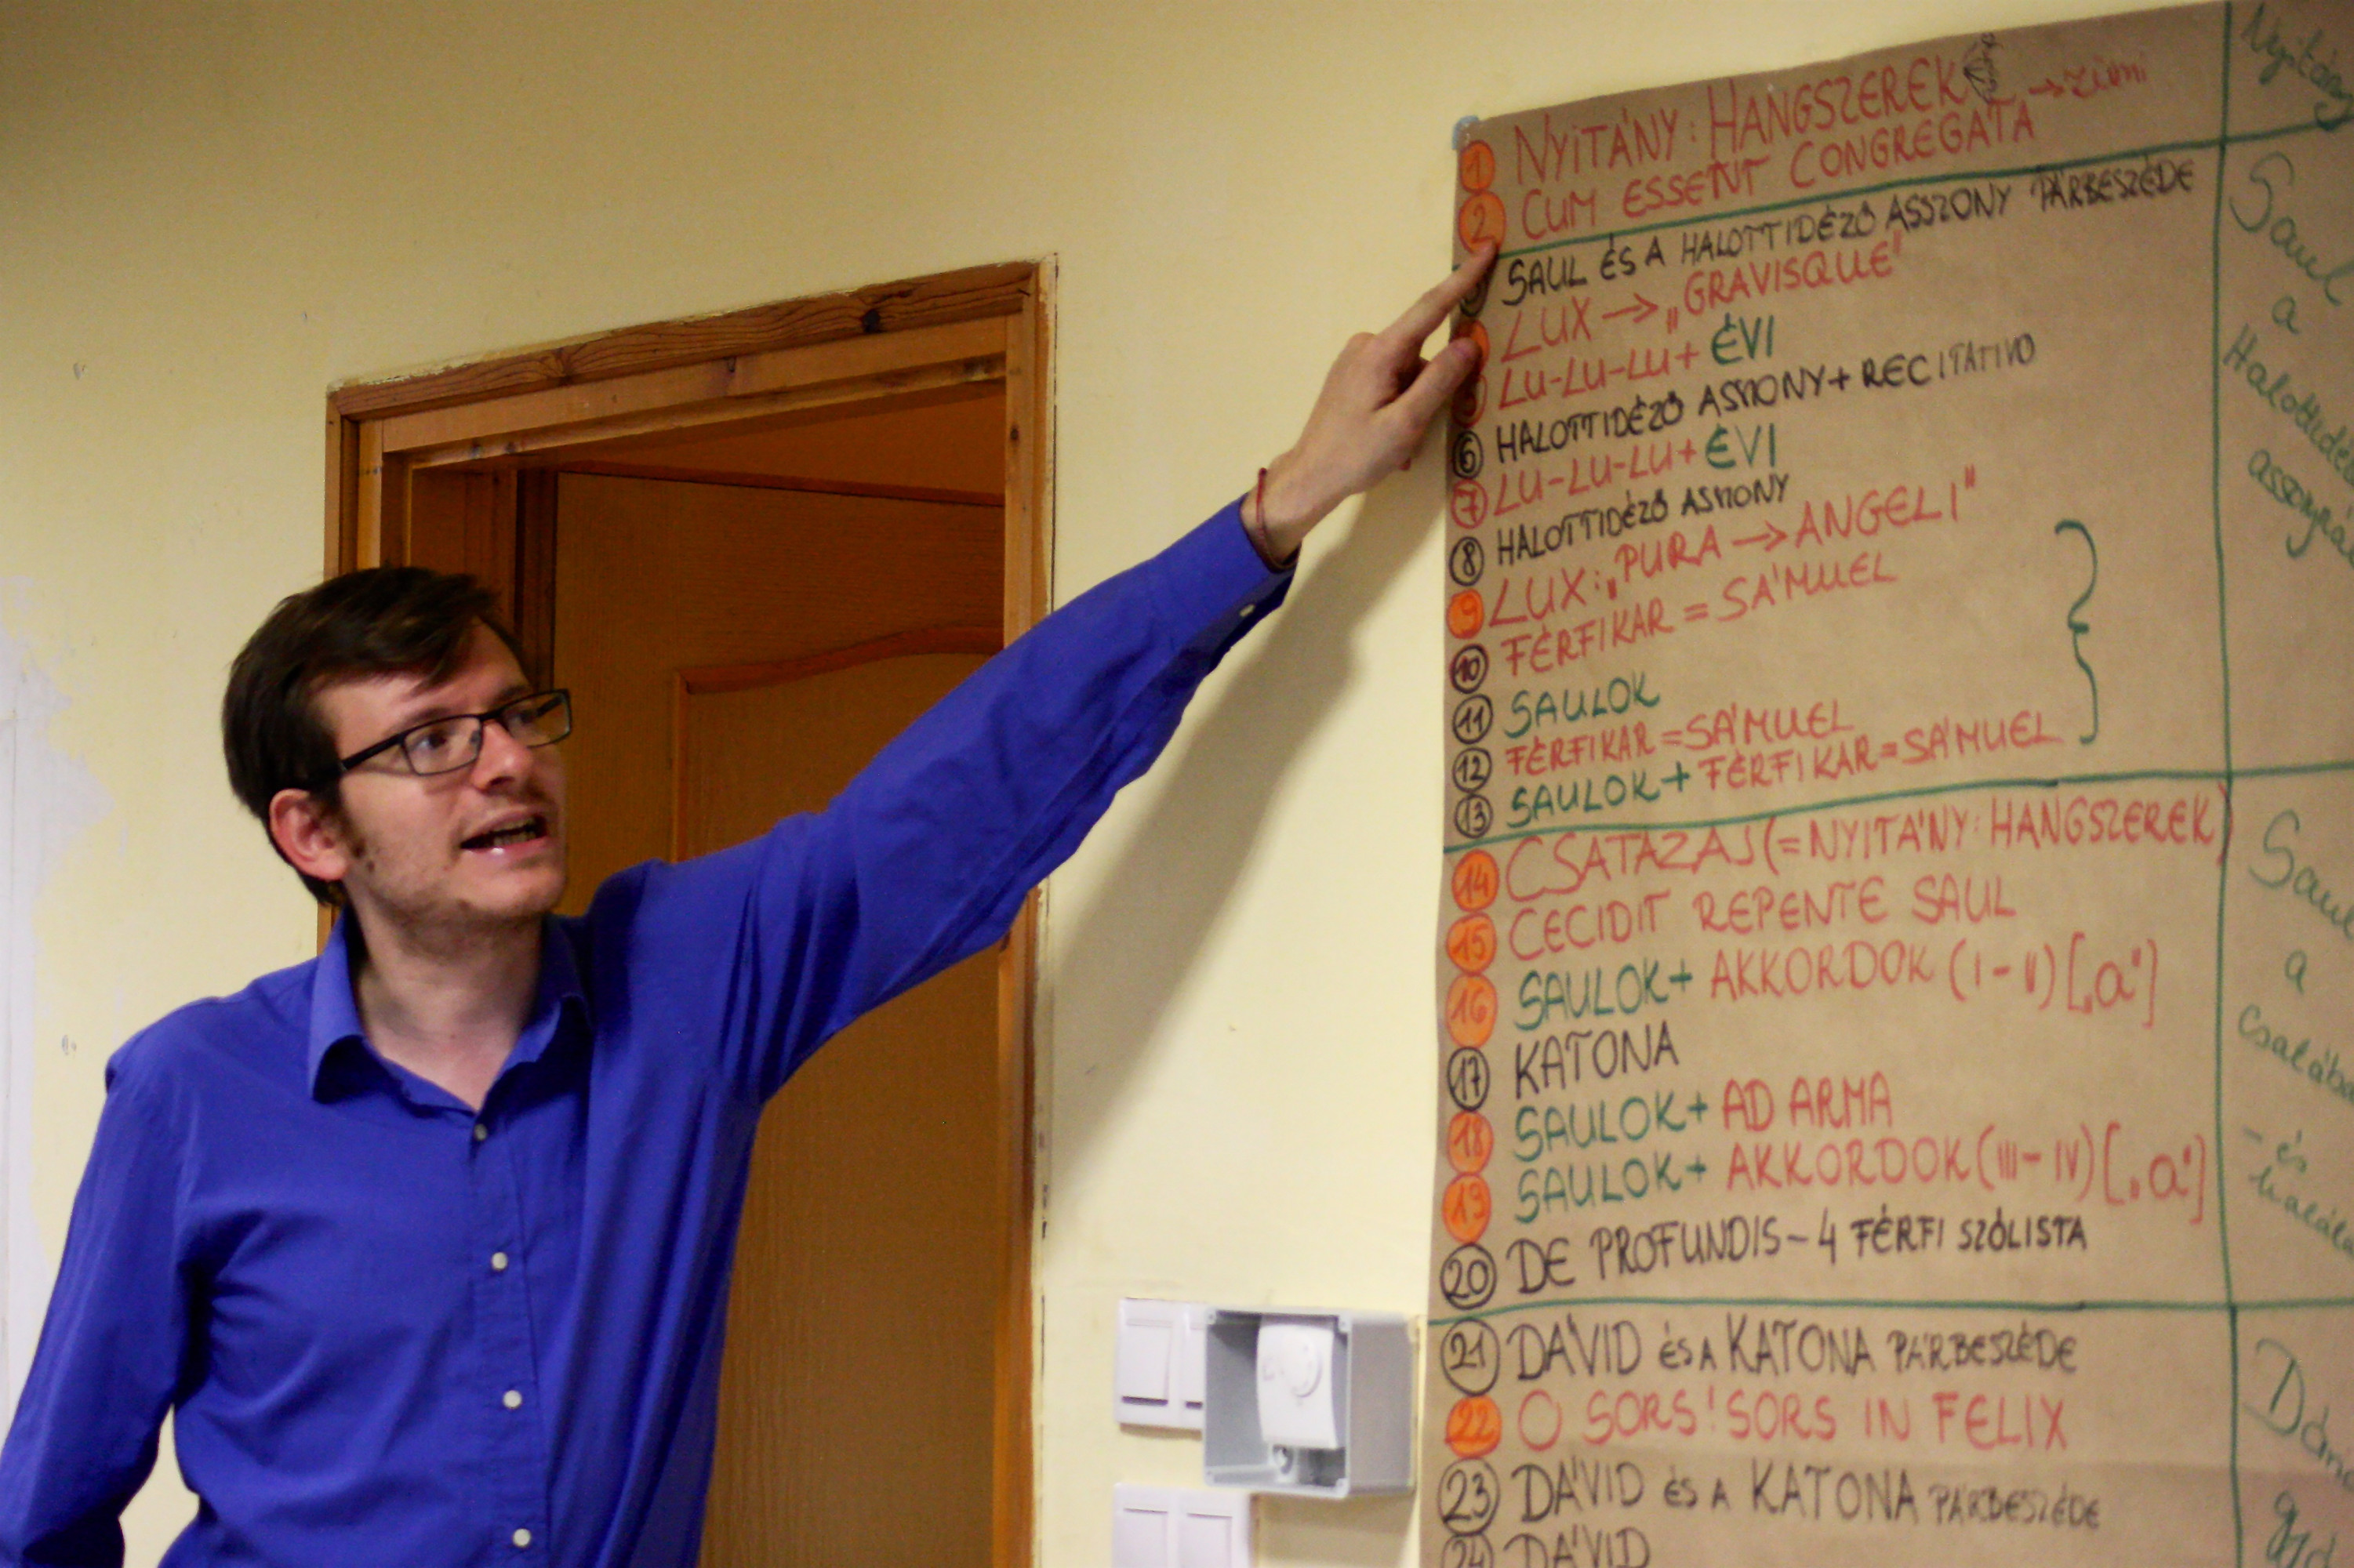 1 NYITÁNY: HANGSZEREK
2 CUM ESSENT CONGREGATA
SAUL ÉS A HALOTTIDÉZŐ ASSZONY PÁRBESZÉDE
LUX → „GRAVISQUE"
LU-LU-LU + ÉVI
6 HALOTTIDÉZŐ ASSZONY + RECITATIVO
7 LU-LU-LU + ÉVI
8 HALOTTIDÉZŐ ASSZONY
9 LUX: „PURA → ANGELI"
10 FÉRFIKAR = SÁMUEL
11 SAULOK
12 FÉRFIKAR = SÁMUEL
13 SAULOK + FÉRFIKAR = SÁMUEL
14 CSATAZAJ (= NYITÁNY: HANGSZEREK)
15 CECIDIT REPENTE SAUL
16 SAULOK + AKKORDOK (I - II) [„a"]
17 KATONA
18 SAULOK + AD ARMA
19 SAULOK + AKKORDOK (III - IV) [„a"]
20 DE PROFUNDIS - 4 FÉRFI SZÓLISTA
21 DÁVID ÉS A KATONA PÁRBESZÉDE
22 O SORS! SORS IN FELIX
23 DÁVID ÉS A KATONA PÁRBESZÉDE
24 DÁVID
Nyitány
Saul
a
Saul
a
- és